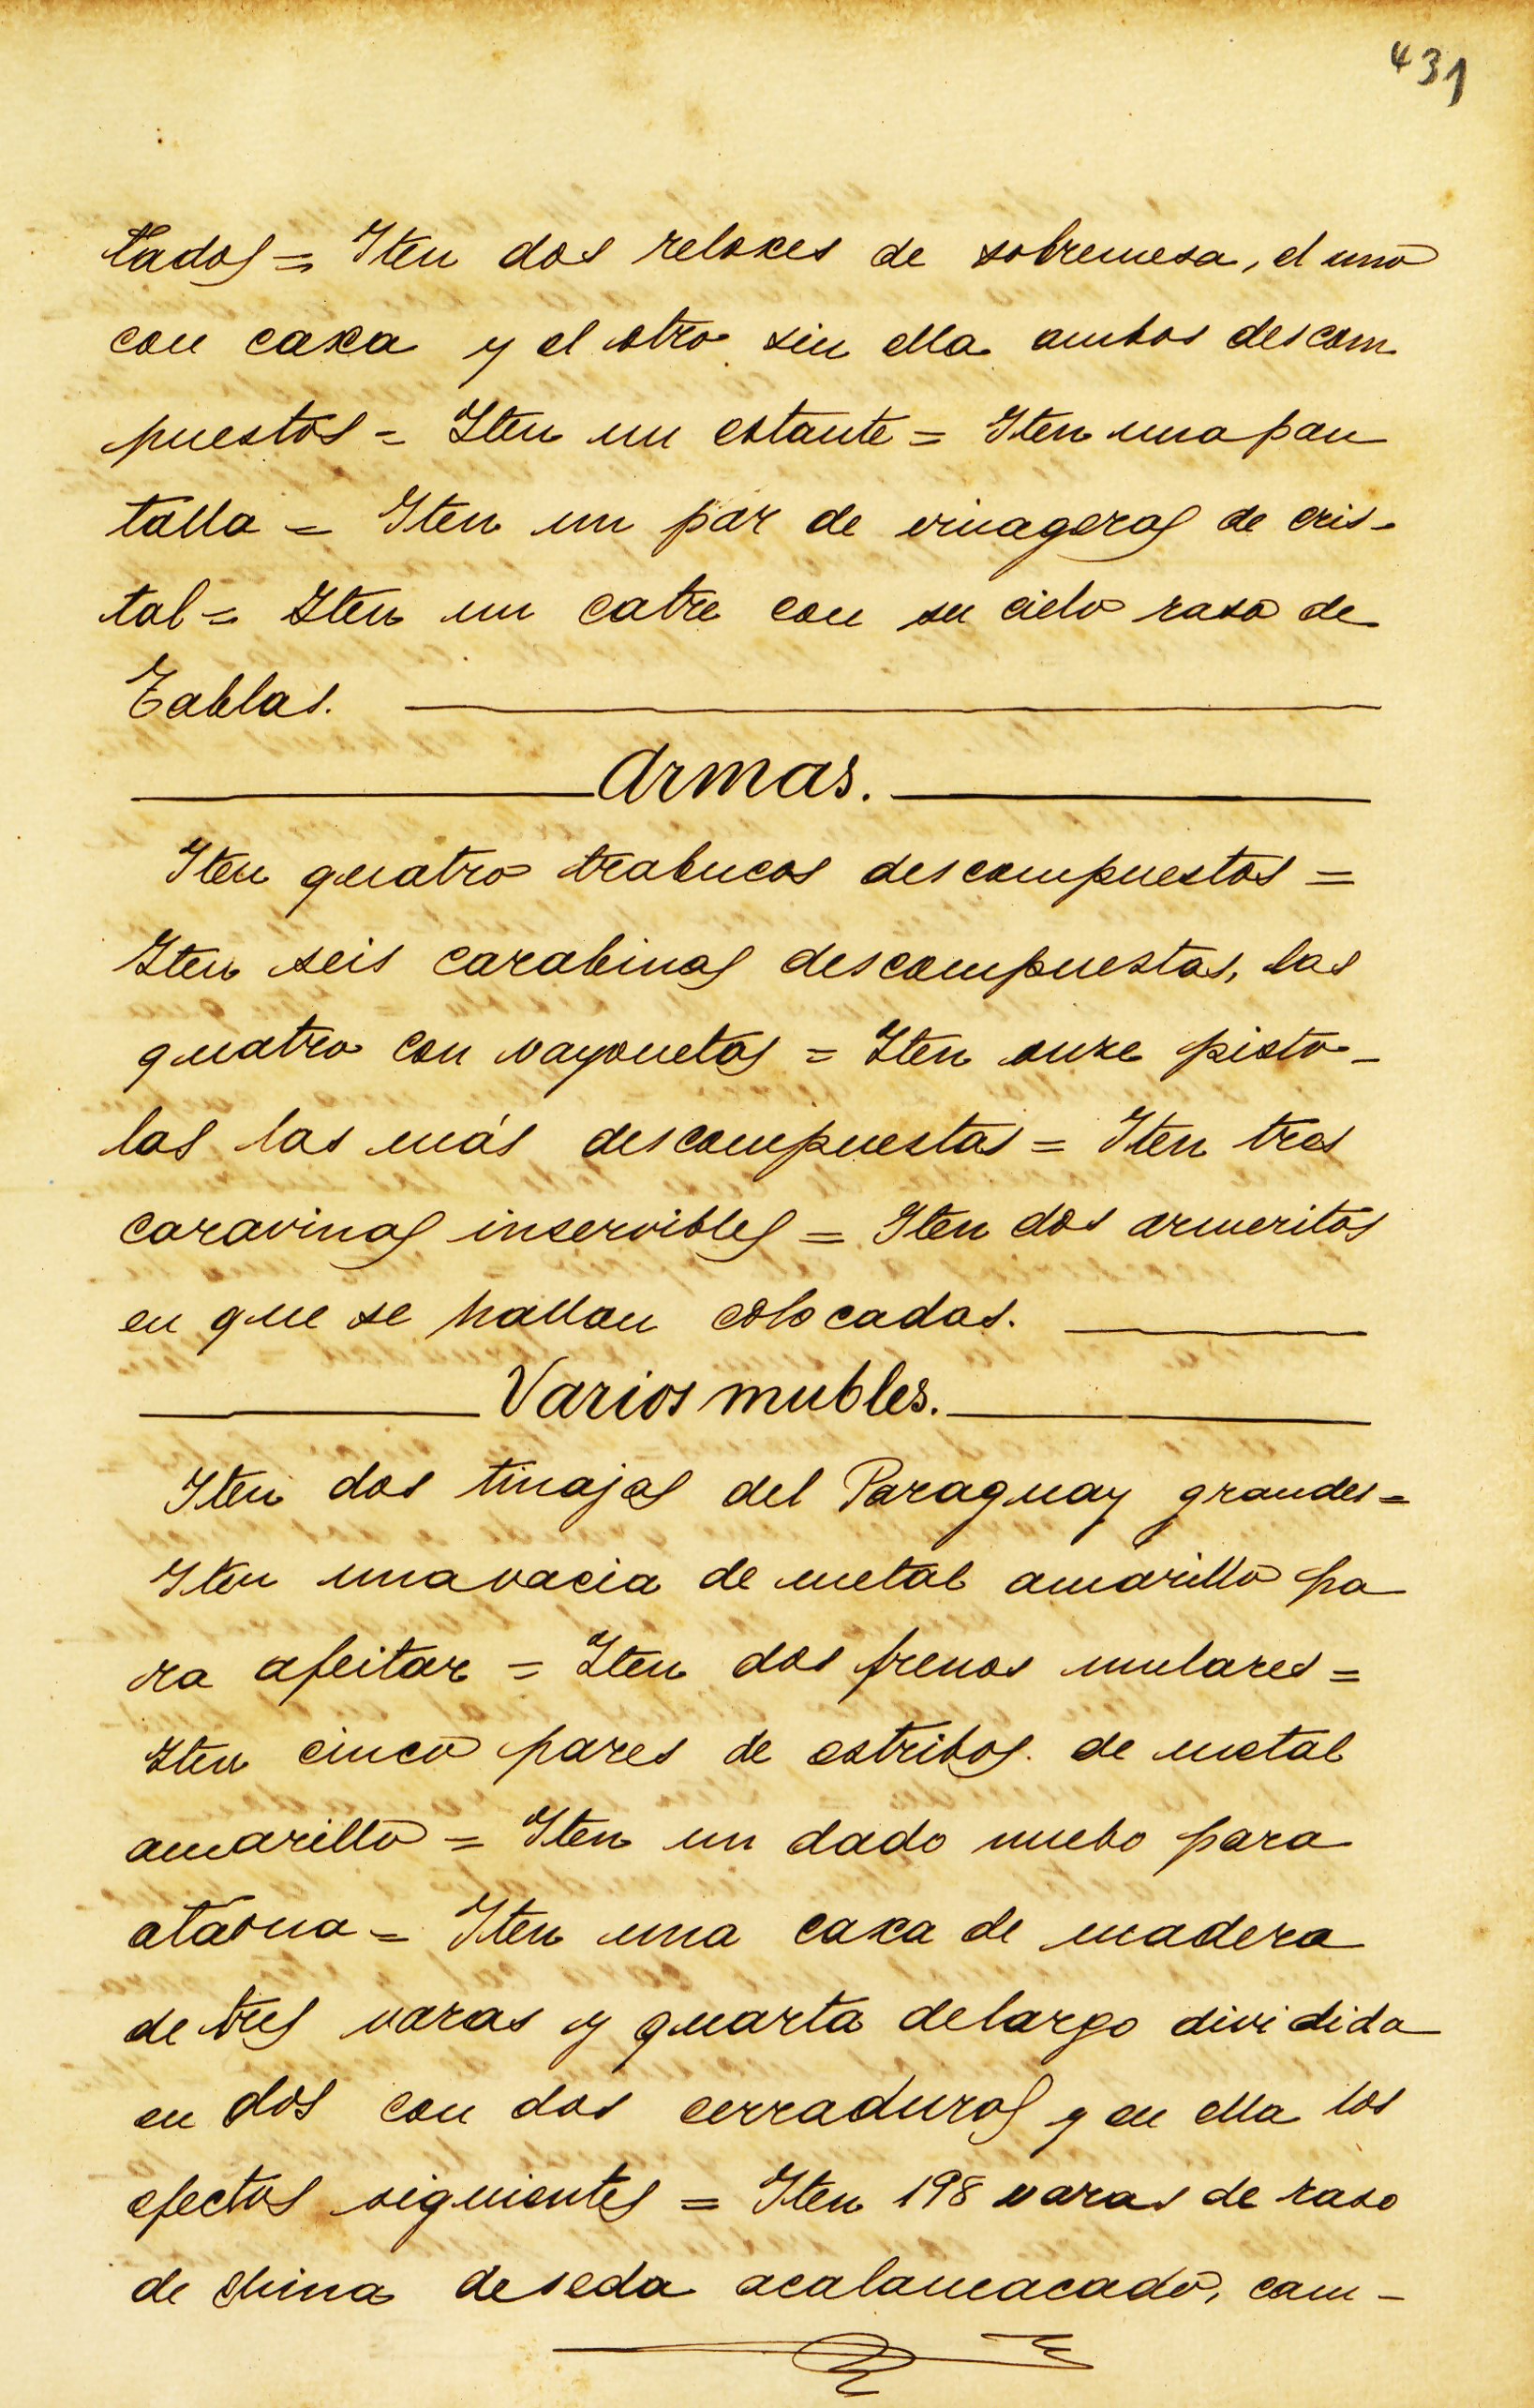 431
tados = Iten dos reloxes de sobremesa, el uno
con caxa y el otro sin ella ambos descom
puestos = Iten un estante = Iten una pan
talla = Iten un par de vinageras de cris-
tal = Iten un catre con su cielo raso de
Tablas.
Armas.
Iten quatro trabucos descompuestos =
Iten seis carabinas descompuestas, las
quatro con vayonetas = Iten onze pisto-
las las más descompuestas = Iten tres
caravinas inservibles = Iten dos armeritos
en que se hallan colocadas.
Varios mubles.
Iten dos tinajas del Paraguay grandes =
Iten una vacia de metal amarillo pa
ra afeitar = Iten dos frenos mulares =
Iten cinco pares de estribos de metal
amarillo = Iten un dado nuebo para
ataona = Iten una caxa de madera
de tres varas y quarta de largo dividida
en dos con dos cerraduras y en ella los
efectos siguientes = Iten 198 varas de raso
de China de seda acalamacado, cam-